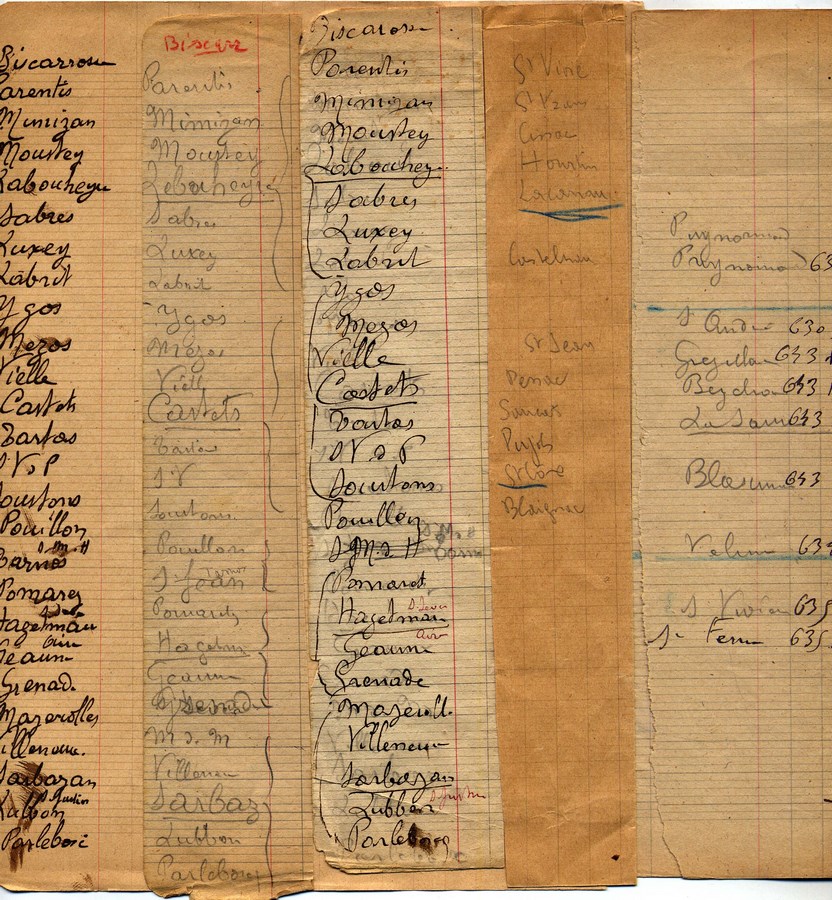 Biscarrosse
Parentis
Mimizan
Moustey
Labouheyre
Sabres
Luxey
Labrit
Ygos
Mezos
Vielle
Castets
Tartas
S V d P
Soustons
Pouillon
S. M. H
Pomarez
Hagetmau
Aire
Geaune
Grenad.
Mazerolles
Villeneuve.
Sarbazan
S. Justin
Lubbon
Parlebosc
Biscarr
Parentis
Mimizan
Moustey
Labouheyre
Sabres
Luxey
Labrit
Ygos
Mezos
Viell
Castets
Tartas
S V
Soustons
Pouillon
S. Jean
Pomarez
Hagetm
Geaune
Grenade
M d M
Villeneu
Sarbaz
Lubbon
Parlebosc
Biscaross
Parentis
Mimizan
Moustey
Labouheyr
Sabres
Luxey
Labrit
Ygos
Mezos
Vielle
Castets
Tartas
S V d P
Soustons
Pouillon
S. M. d H
Pomarez
S. Sever
Hagetmau
Aire
Geaune
Grenade
Mazeroll.
Villeneuve
Sarbazan
Lubbon S. Justin
Parlebosc
St Vive
Cissac
Hourtin
Lacanau
Castelnau
St Jean
Pessac
Pujols
Blaignac
Puynormand
S. André 630
643
Beychac 643
La Sauve 643
643
S. Vivien 635
S. Ferme 635